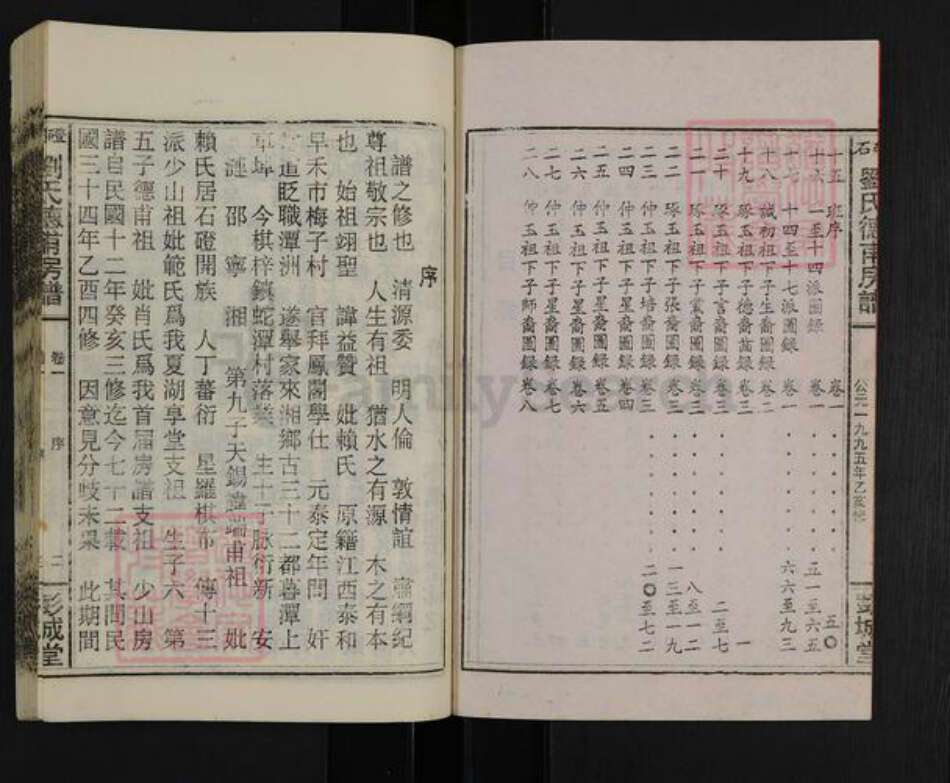 劉氏德甫房譜
公元一九九五年乙亥
彭城堂
十五 班序 卷一 五〇
十六 一至十四派圖錄 卷一 五一至六五
十七 十四至十七派圖錄 卷一 六六至九三
十八 誠初祖下子生裔圖錄 卷二
十九 琢玉祖下子德裔圖錄 卷三 一
二十 琢玉祖下子言裔圖錄 卷三 二至七
二一 琢玉祖下子業裔圖錄 卷三 八至一二
二二 琢玉祖下子張裔圖錄 卷三 一三至一九
二三 仲玉祖下子培裔圖錄 卷三 二〇至七二
二四 仲玉祖下子星裔圖錄 卷四
二五 仲玉祖下子星裔圖錄 卷五
二六 仲玉祖下子星裔圖錄 卷六
二七 仲玉祖下子星裔圖錄 卷七
二八 仲玉祖下子師裔圖錄 卷八
序
譜之修也 清源委 明人倫 敦情誼 肅綱紀
尊祖敬宗也 人生有祖 猶水之有源 木之有本
也 始祖翊聖 諱益贊 妣賴氏 原籍江西泰和
早禾市梅子村 官拜鳳閣學仕 元泰定年間 奸
道貶職潭洲 遂舉家來湘鄉古三十二都暮潭上
草埠 今棋梓鎮蛇潭村落業 生十子脉衍新 安
漣 邵 寧 湘 第九子天錫諱端甫祖 妣
賴氏居石磴開族 人丁蕃衍 星羅棋布 傳十三
派少山祖妣範氏爲我夏湖享堂支祖 生子六 第
五子德甫祖 妣肖氏爲我首届房譜支祖 少山房
譜自民國十二年癸亥三修迄今七十二載 其間民
國三十四年乙酉四修 因意見分歧未果 此期間
劉氏德甫房譜
卷一 序 二
彭城堂